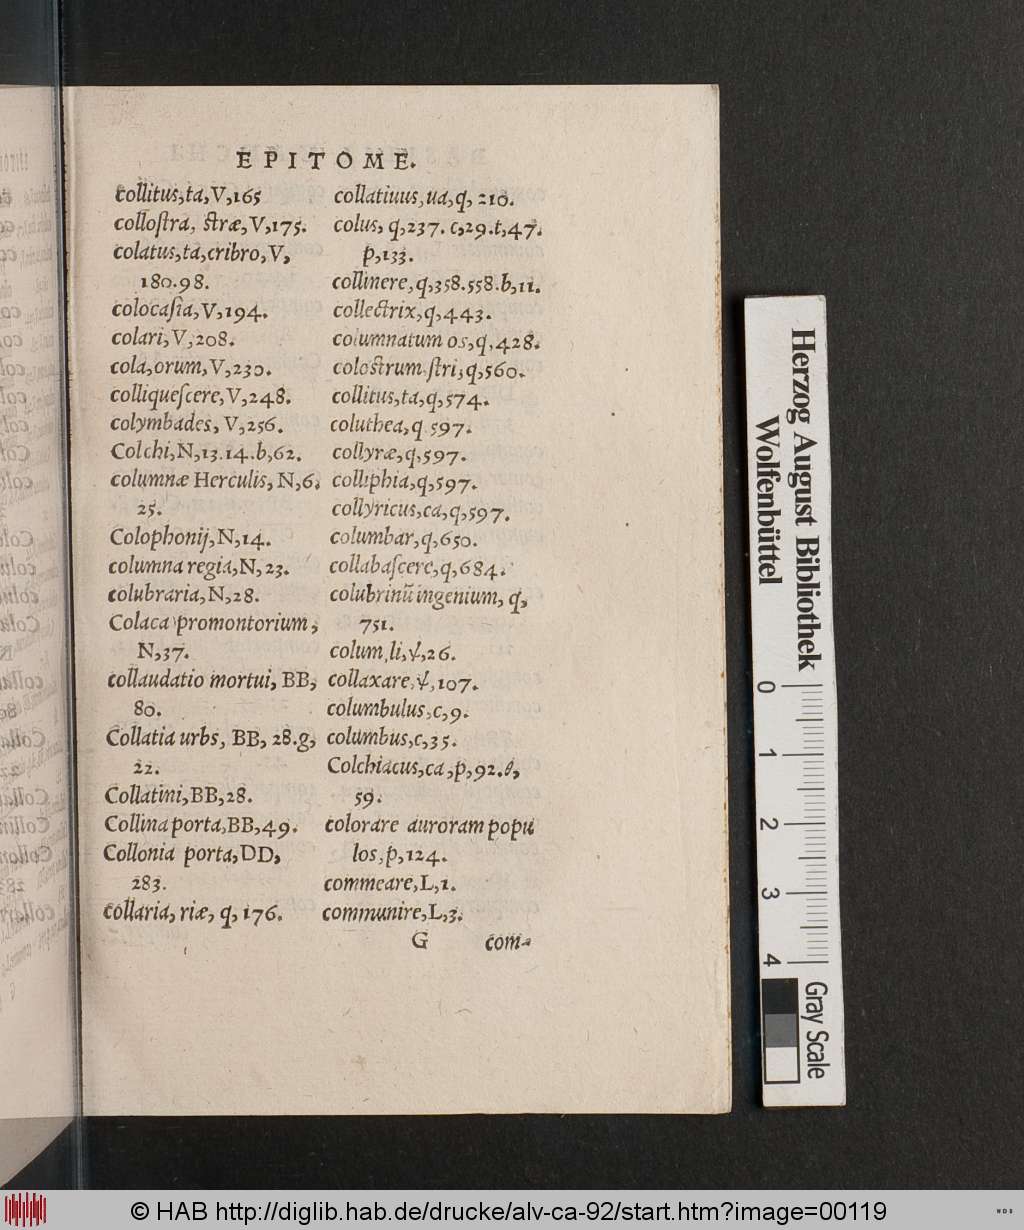 EPITOME.
collitus,ta,V,165
colloſtra, ſtræ,V,175.
colatus,ta,cribro,V,
180.98.
colocaſia,V,194.
colari,V,208.
cola,orum,V,230.
colliqueſcere,V,248.
colymbades, V,256.
Colchi,N,13.14.b,62.
columnæ Herculis, N,6.
25.
Colophonij,N,14.
columna regia,N,23.
colubraria,N,28.
Colaca promontorium,
N,37.
collaudatio mortui, BB,
80.
Collatia urbs, BB, 28.g,
22.
Collatini,BB,28.
Collina porta,BB,49.
Collonia porta,DD,
283.
collaria, riæ, q,176.
collatiuus,ua,q, 210.
colus, q,237. c,29.t,47.
p,133.
collinere,q,358.558.b,11.
collectrix,q,443.
columnatum os,q,428.
coloſtrum ſtri,q,560.
collitus,ta,q,574.
coluthea,q 597.
collyræ,q,597.
colliphia,q,597.
collyricus,ca,q,597.
columbar,q,650.
collabaſcere,q,684.
colubrinū ingenium, q,
751.
colum,li,ψ,26.
collaxare,ψ,107.
columbulus,c,9.
columbus,c,35.
Colchiacus,ca,p,92.
59.
colorare auroram popu
los,p,124.
commeare,L,1.
communire,L,3.
G com-
Herzog August Bibliothek
Wolfenbüttel
0 1 2 3 4
Gray Scale
© HAB http://diglib.hab.de/drucke/alv-ca-92/start.htm?image=00119